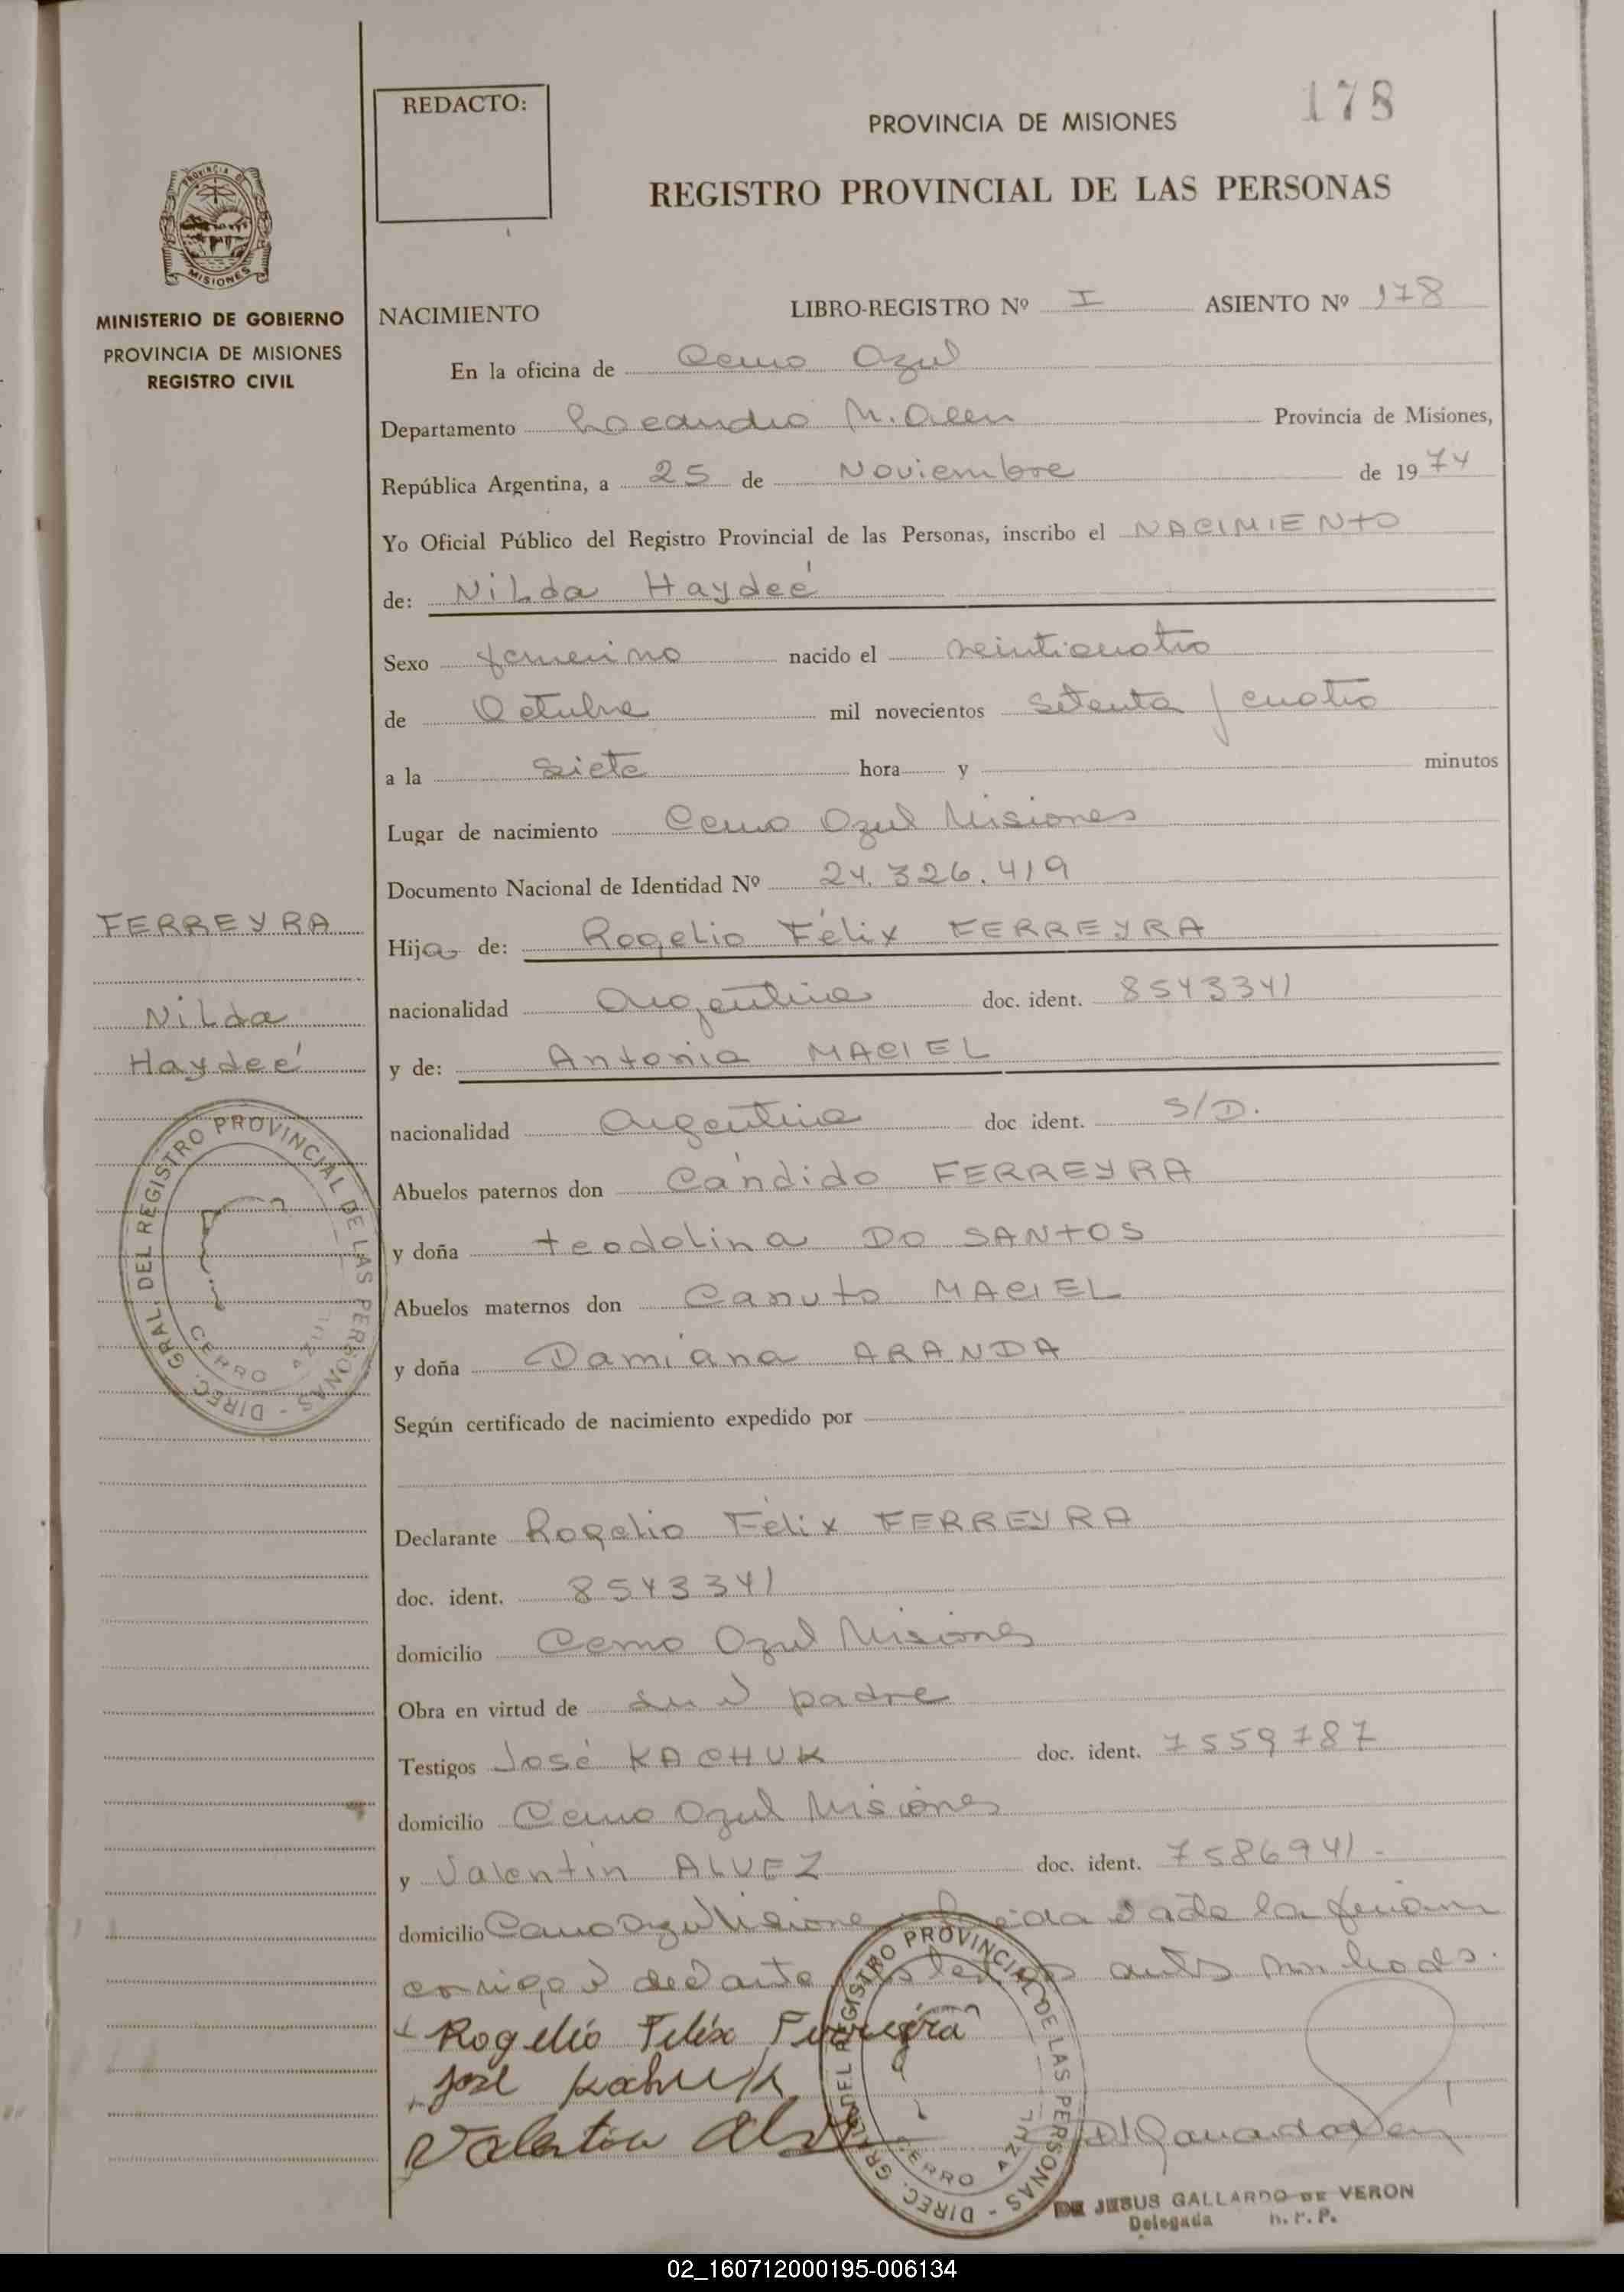 178
REDACTO:
PROVINCIA DE MISIONES
REGISTRO PROVINCIAL DE LAS PERSONAS
PROVINCIA DE
MISIONES
MINISTERIO DE GOBIERNO
PROVINCIA DE MISIONES
REGISTRO CIVIL
NACIMIENTO LIBRO-REGISTRO Nº I ASIENTO Nº 178
En la oficina de Cerro Azul
Departamento Leandro N. Alem Provincia de Misiones,
República Argentina, a 25 de Noviembre de 1974
Yo Oficial Público del Registro Provincial de las Personas, inscribo el NACIMIENTO
de: Nilda Haydeé
Sexo femenino nacido el veinticuatro
de Octubre mil novecientos setenta y cuatro
a la siete hora y minutos
Lugar de nacimiento Cerro Azul Misiones
Documento Nacional de Identidad Nº 24.326.419
FERREYRA
Nilda
Haydeé
Hija de: Rogelio Félix FERREYRA
nacionalidad Argentina doc. ident. 8543341
y de: Antonia MACIEL
nacionalidad Argentina doc ident. S/D.
Abuelos paternos don Cándido FERREYRA
y doña Teodolina DO SANTOS
Abuelos maternos don Canuto MACIEL
y doña Damiana ARANDA
DIREC. GRAL. DEL REGISTRO PROVINCIAL DE LAS PERSONAS -
CERRO AZUL
Según certificado de nacimiento expedido por
Declarante Rogelio Félix FERREYRA
doc. ident. 8543341
domicilio Cerro Azul Misiones
Obra en virtud de ser el padre
Testigos José KACHUK doc. ident. 7559787
domicilio Cerro Azul Misiones
y Valentín ALVEZ doc. ident. 7586941-
domicilio Cerro Azul Misiones leida el acta la firman
conmigo el declarante testigos antes nombrados.
Rogelio Felix Ferreyra
José Kachuk
Valentin
DIREC. GRAL. DEL REGISTRO PROVINCIAL DE LAS PERSONAS -
CERRO AZUL
DE JESUS GALLARDO DE VERON
Delegada R. P. P.
02_160712000195-006134